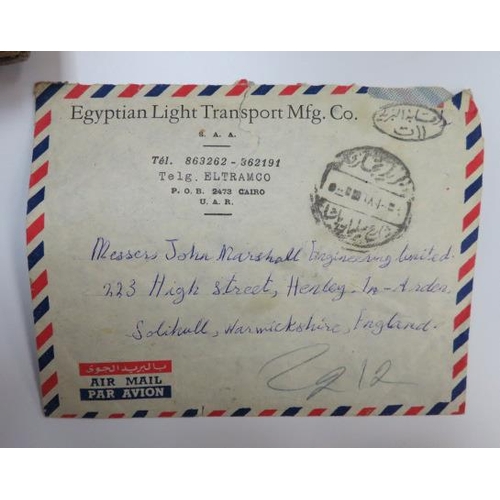 Egyptian Light Transport Mfg. Co.
S. A. A.
Tél. 863262 - 362191
Telg. ELTRAMCO
P. O. B. 2473 CAIRO
U. A. R.
Messers John Marshall Engineering Limited.
223 High Street, Henley-In-Arden
Solihull, Warwickshire, England.
بالبريد الجوى
AIR MAIL
PAR AVION